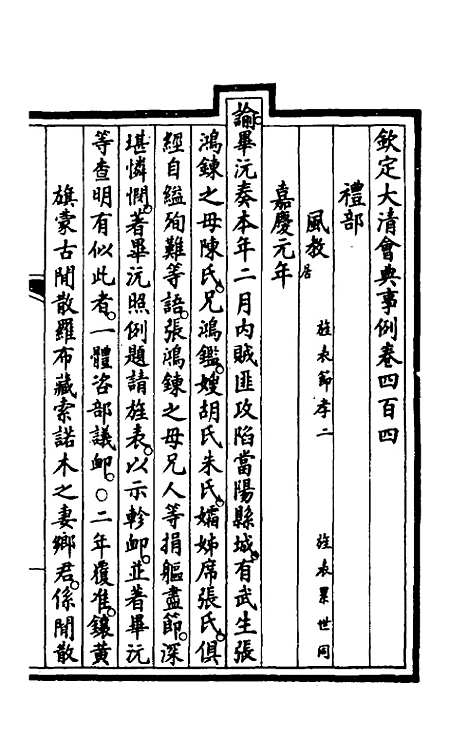 欽定大清會典事例卷四百四
禮部
風教 旌表節孝二 旌表累世同居
嘉慶元年
諭畢沅奏本年二月內賊匪攻陷當陽縣城。有武生張
鴻鍊之母陳氏。兄鴻鑑。嫂胡氏朱氏。孀姊席張氏。俱
經自縊殉難等語。張鴻鍊之母兄人等捐軀盡節。深
堪憐憫。著畢沅照例題請旌表。以示軫卹。並著畢沅
等查明有似此者。一體咨部議卹。○二年覆准。鑲黃
旗蒙古閒散羅布藏索諾木之妻鄉君。係閒散